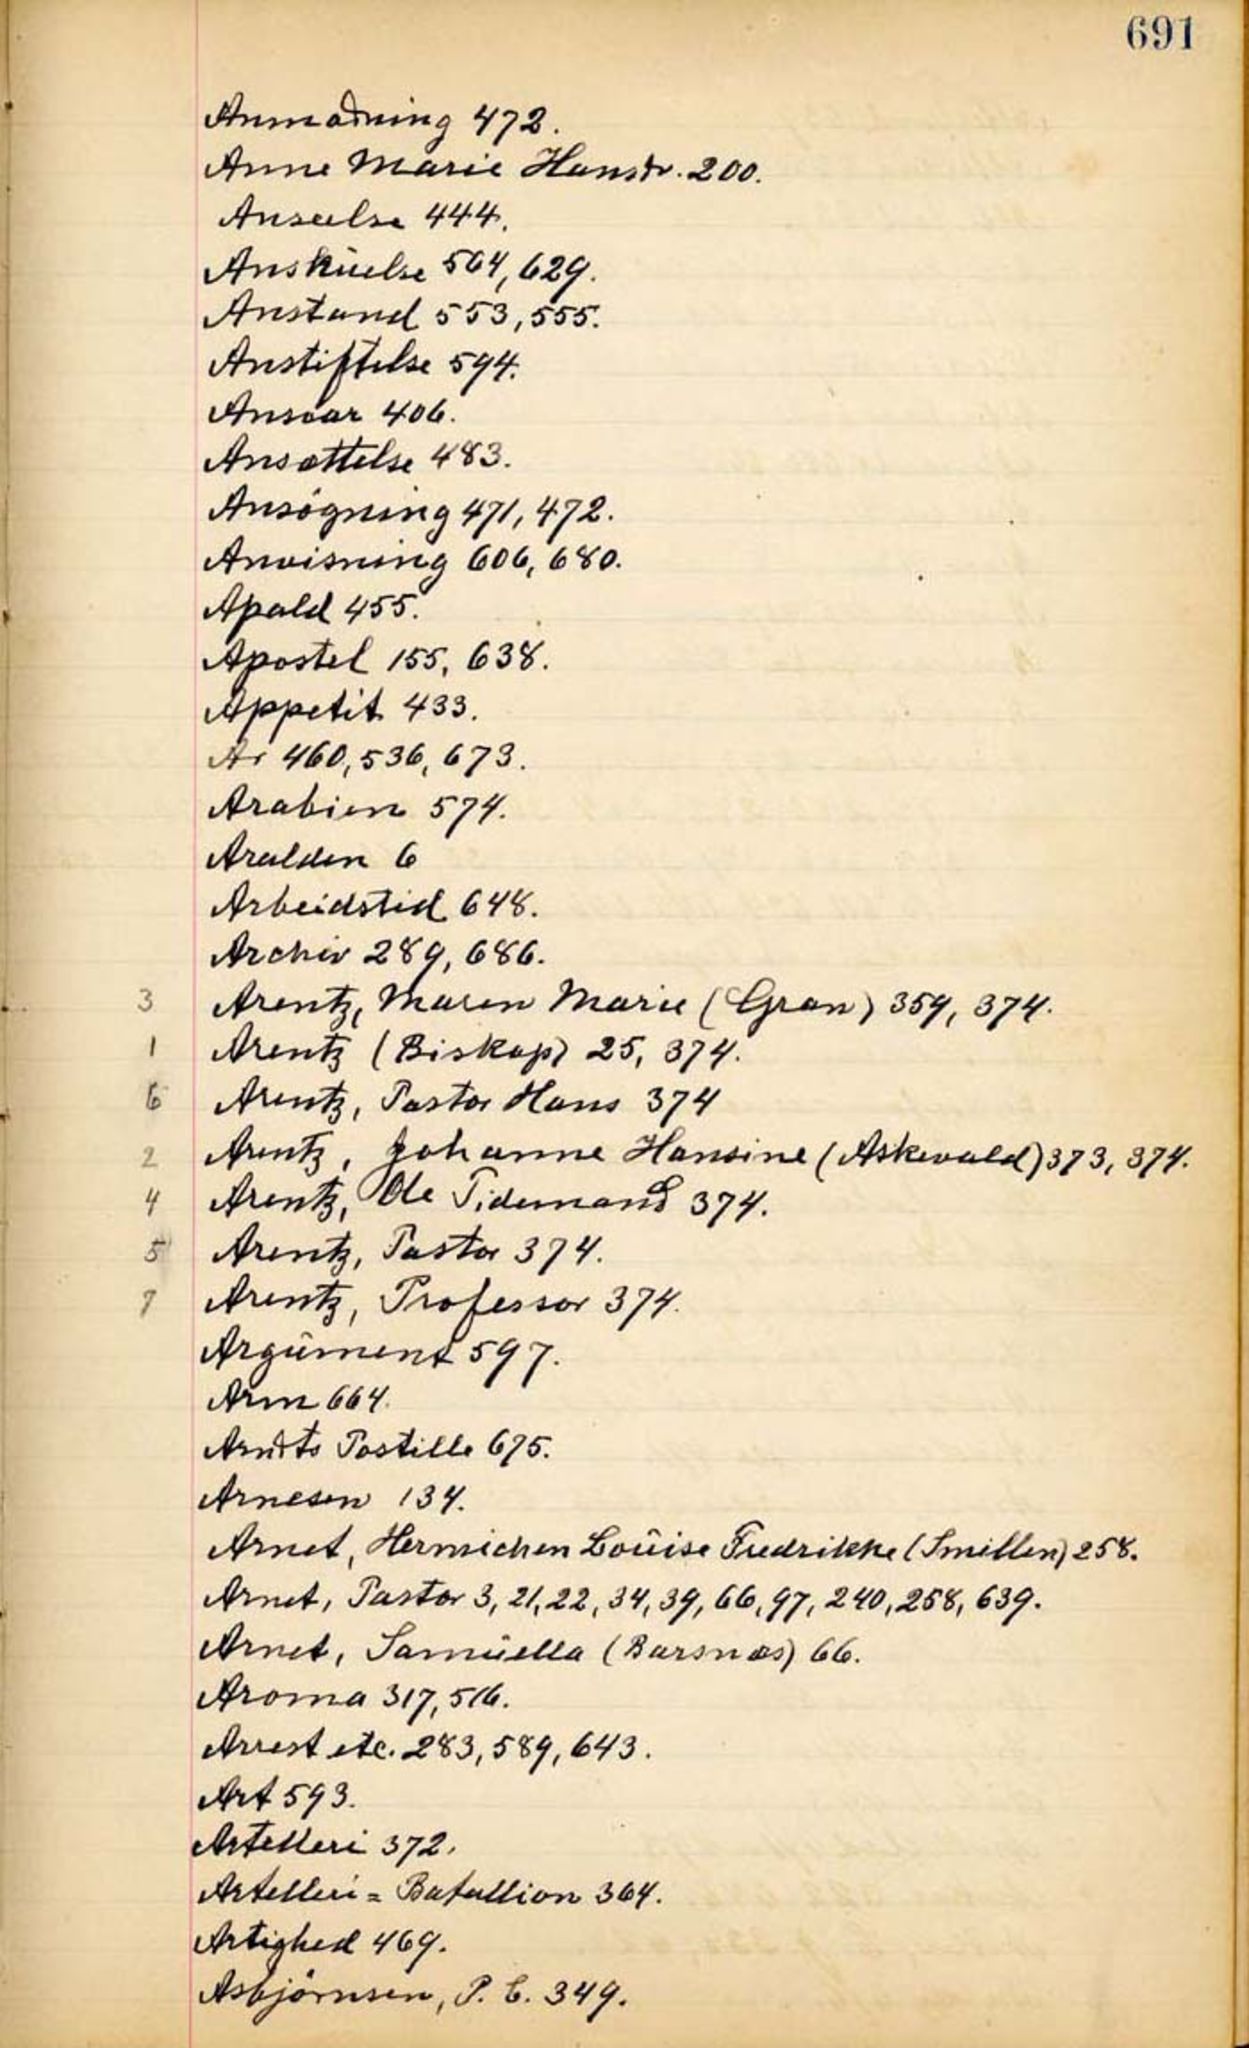 691
Anmodning 472.
Anne Marie Hansdr. 200.
Anseelse 444.
Anskuelse 564, 629.
Anstand 553, 555.
Anstiftelse 594.
Ansvar 406.
Ansættelse 483.
Ansøgning 471, 472.
Anvisning 606, 680.
Apald 455.
Apostel 155, 638.
Appetit 433.
Ar 460, 536, 673.
Arabien 574.
Aralden 6
Arbeidstid 648.
Archiv 289, 686.
3 Arentz, Maren Marie (Gran) 359, 374.
1 Arentz (Biskop) 25, 374.
6 Arentz, Pastor Hans 374
2 Arentz, Johanne Hansine (Askevold) 373, 374.
4 Arentz, Ole Tidemand 374.
5 Arentz, Pastor 374.
7 Arentz, Professor 374.
Argument 597.
Arm 664.
Arndts Postille 675.
Arnesen 134.
Arnet, Hermichen Louise Fredrikke (Smillen) 258.
Arnet, Pastor 3, 21, 22, 34, 39, 66, 97, 240, 258, 639.
Arnet, Samuella (Barsnæs) 66.
Aroma 317, 516.
Arrest etc. 283, 589, 643.
Art 593.
Artelleri 372.
Artelleri = Batallion 364.
Artighed 469.
Asbjørnsen, P. C. 349.